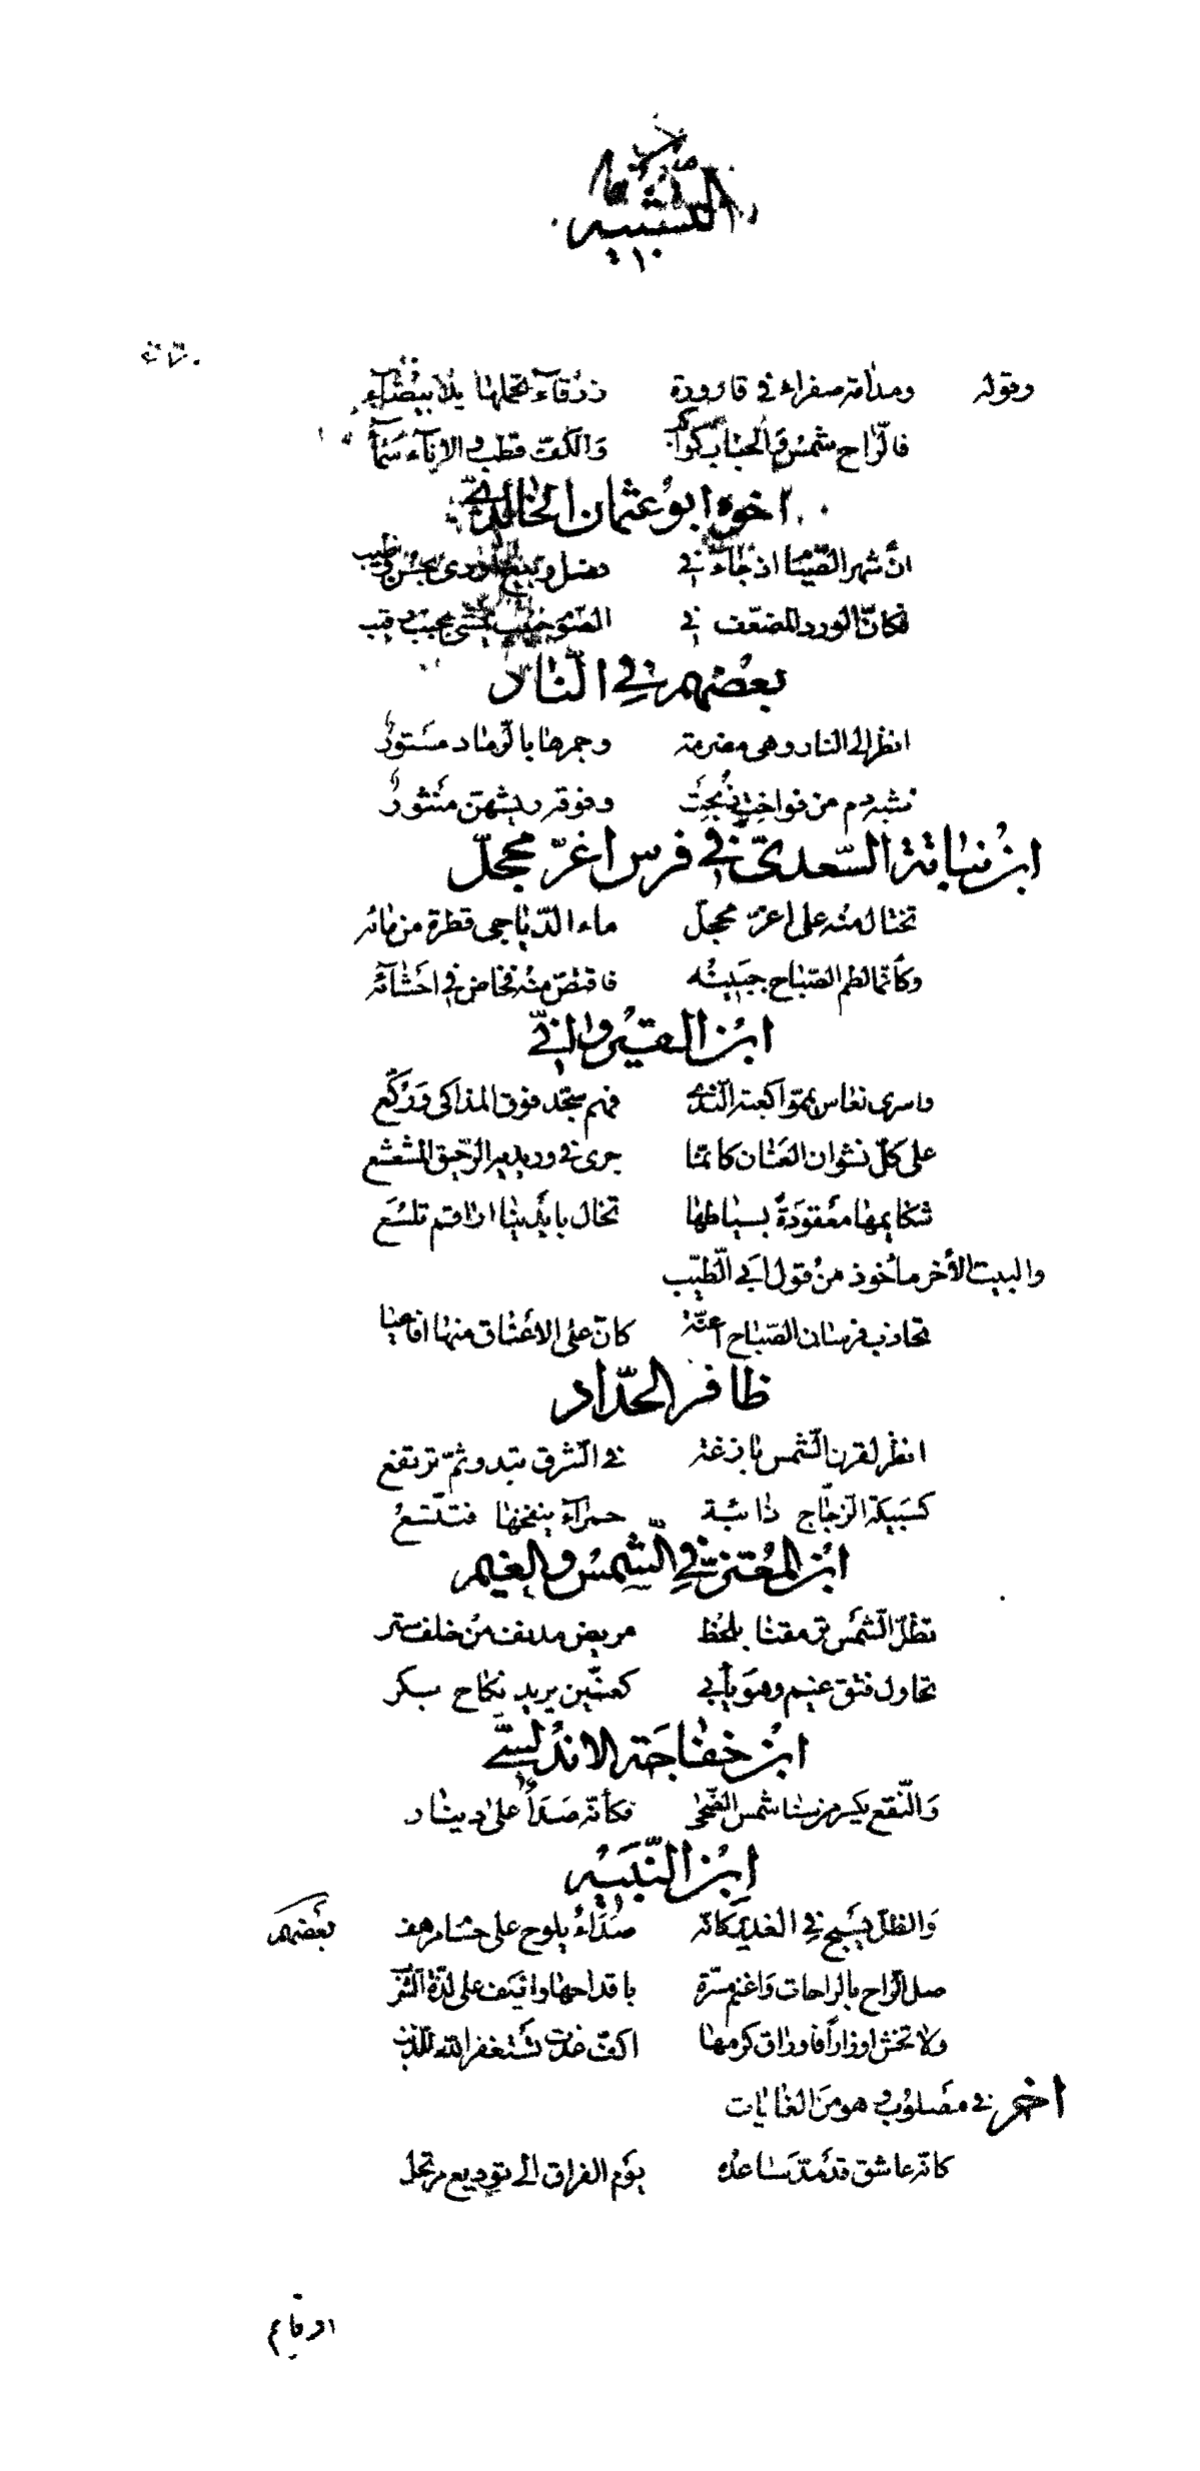 التشبيه
وقوله ومدامة صفراء في قارورة زرقآء تحملها يد بيضآء
فالرّاح شمس والحباب كواكب والكفّ قطب والاناء سمآء
اخوه ابو عثمان الخالدي
انّ شهر الصّيام اذ جاء في فصل ربيع اودى بحسن وطيب
فكانّ الورد المضعّف في الصّوم حبيب يمشي بجنب رقيب
بعضهم في النّار
انظر الى النار وهى مضرمة وجمرها بالرّماد مستورُ
تشبه دم من فواخت ذُبحت وفوقه ريشهنّ منثورُ
ابن نباتة السّعدىّ في فرس اغرّ محجلّ
تختال منه على اغرّ محجلّ ماء الدّياجى قطرة من مائه
وكأنّما لطم الصّباح جبينه فاقتصّ منه فخاض في احشآئه
ابن القيروانيّ
واسرى نعاس يمّموا كعبة النّدى فهم سجّد فوق المذاكى وركّع
على كلّ نشوان العنان كانمّا جرى في وريديه الرّحيق المشعشع
شكايمها معقودة بسياطها تخال بايدينا اراقم تلسَع
والبيت الأخر مأخوذ من قول ابي الطّيّب
تجاذب فرسان الصّباح اعنّة كانّ على الاعناق منها افاعيا
ظافر الحدّاد
انظر لقرن الشّمس بازغة في الشّرق تبدو ثمّ ترتفع
كسبيكة الزجّاج ذائبة حمرآء ينفخها فتتّسعُ
ابن المعتز في الشّمس والغيم
تظلّ الشّمس ترمقنا بلحظ مريض مدنف من خلف ستر
تحاول فتق غيم وهو يأبى كعنّين يريد نكاح بكر
ابن خفاجة الاندلسيّ
والنّقع يكسر من سنا شمس الضّحى فكأنّه صدأ على دينار
ابن النّبيه
والظلّ يسبح في الغدير كانّه صداء يلوح على حسام مرهف بعضهم
صل الرّاح بالراحات واغنم مسّرة باقداحها واعكف على لذّة الشرب
ولا تخش اوزاراً فاوراق كرمها اكفّ غدت تستغفر الله للذنب
اخر في مصلوب وهو من الغايات
كانّه عاشق قد مدّ ساعده يوم الفراق الى توديع مرتحل
او قايم